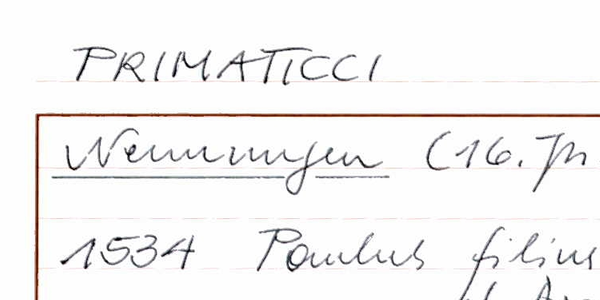 PRIMATICCI
Nennungen (16. Jh
1534 Paulus filius